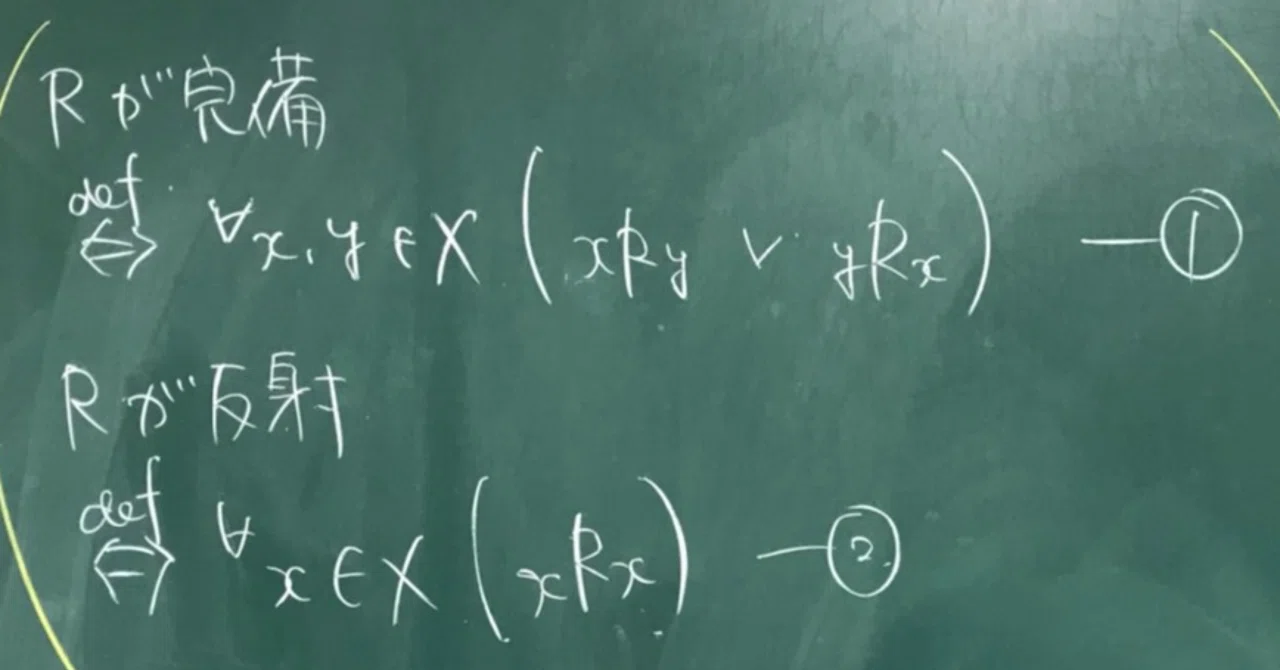 Rが完備
def
⇔ ∀x, y ∈ X ( xRy ∨ yRx ) ―①
Rが反射
def
⇔ ∀x ∈ X ( xRx ) ―②